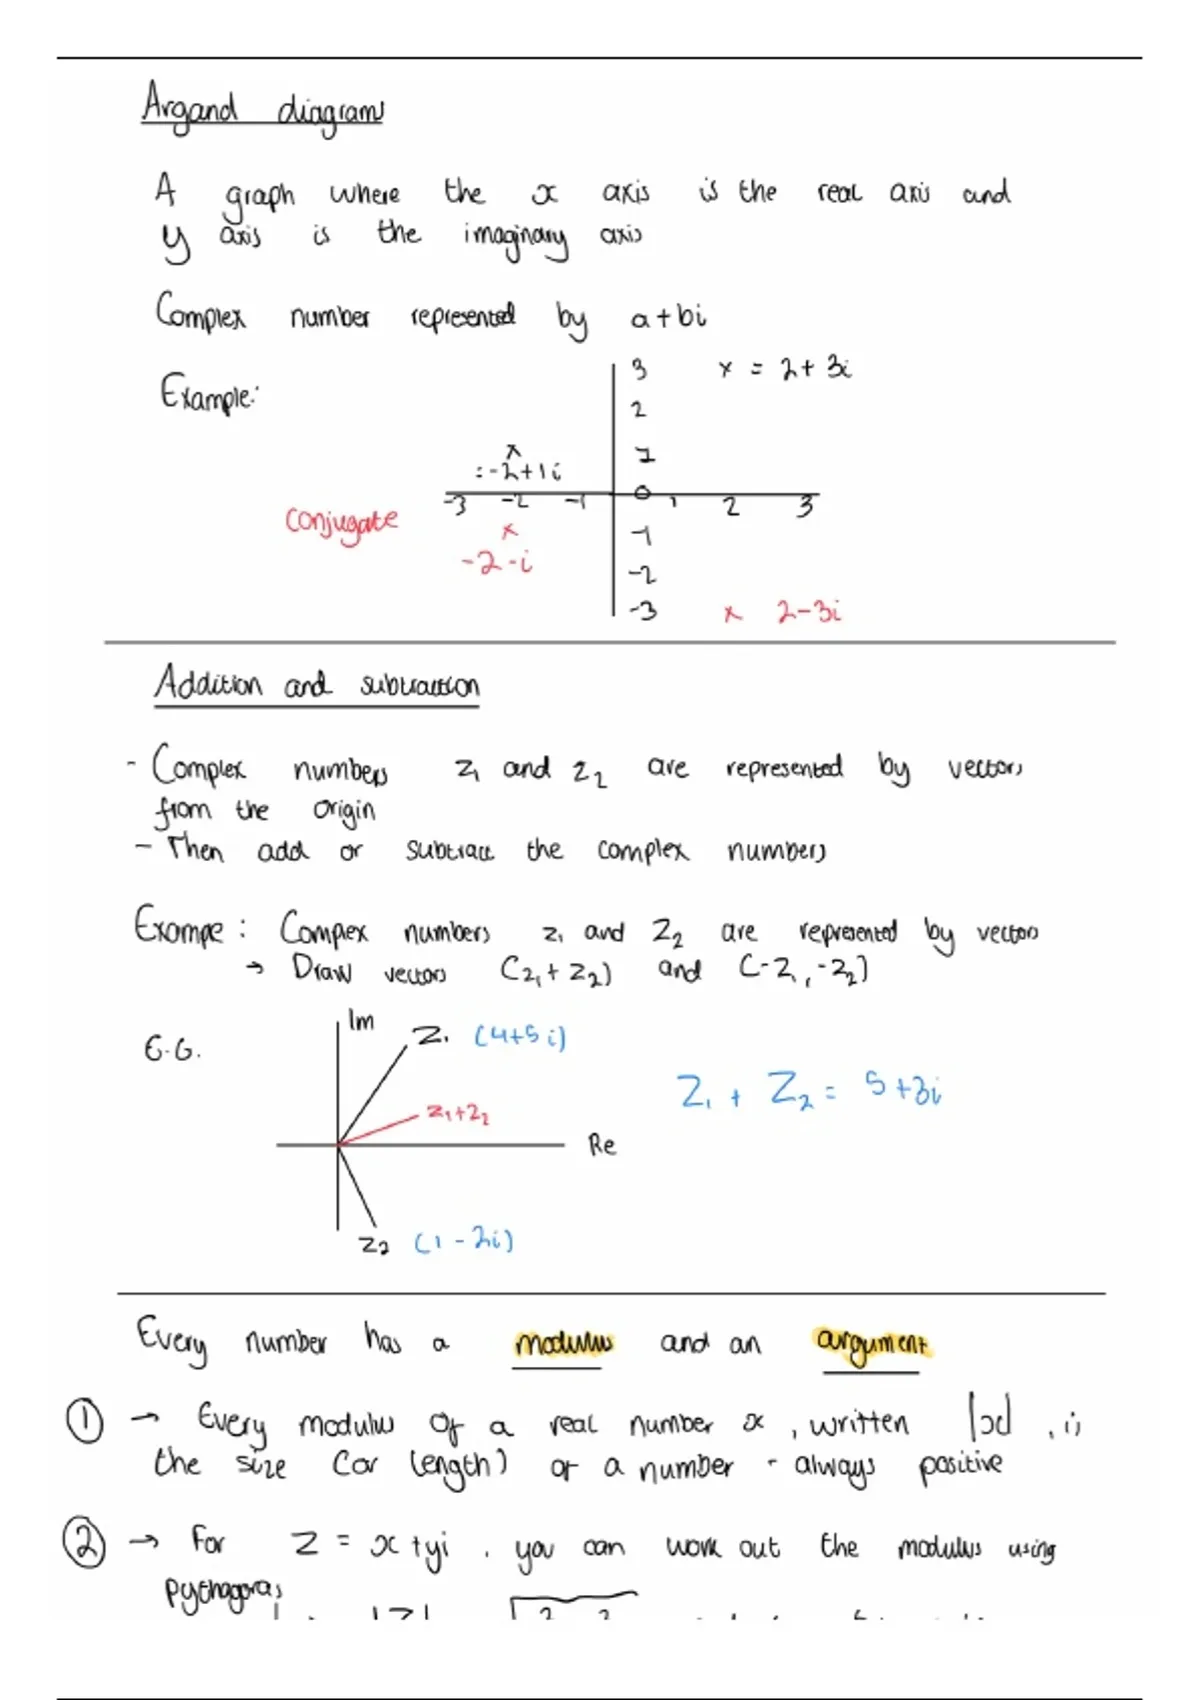 Argand diagrams
A graph where the x axis is the real axis and
y axis is the imaginary axis
Complex number represented by a+bi
Example:
3 x = 2+3i
2
x 1
=-2+1i
-3 -2 -1 0 1 2 3
conjugate x -1
-2-i -2
-3 x 2-3i
Addition and subtraction
- Complex numbers z1 and z2 are represented by vectors
from the origin
- Then add or subtract the complex numbers
Exampe: Complex numbers z1 and z2 are represented by vectors
→ Draw vectors (z1+z2) and (-z1,-z2)
E.G. Im z1 (4+5i)
z1 + z2 = 5+3i
z1+z2
Re
z2 (1-2i)
Every number has a modulus and an argument
① → Every modulus of a real number x, written |x|, is
the size (or length) of a number - always positive
② → For z = x+yi, you can work out the modulus using
pythagoras